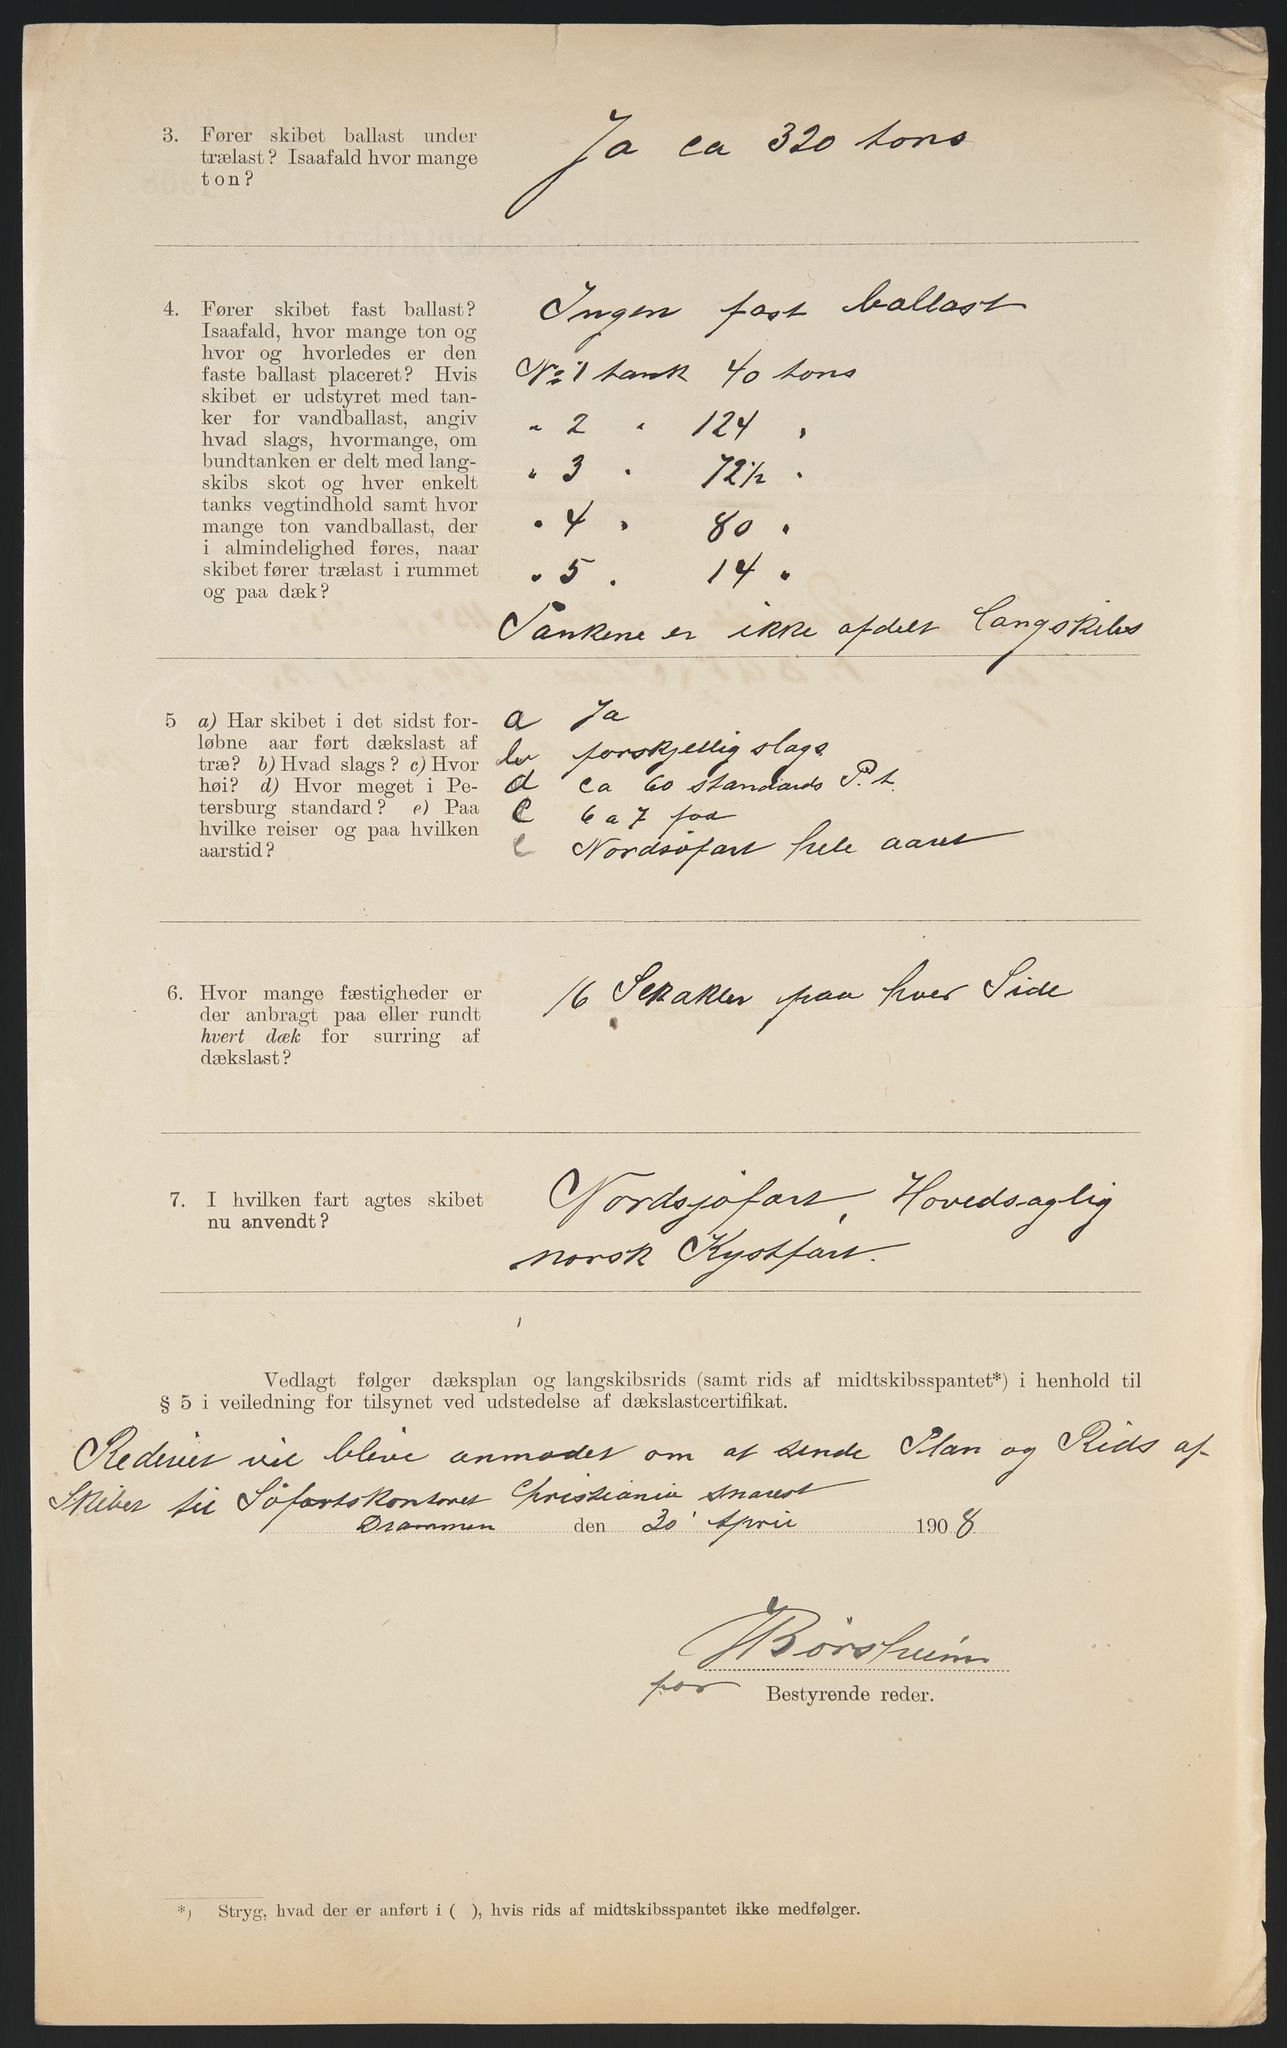 3. Fører skibet ballast under
trælast? Isaafald hvor mange
ton?
Ja ca 320 tons
4. Fører skibet fast ballast?
Isaafald, hvor mange ton og
hvor og hvorledes er den
faste ballast placeret? Hvis
skibet er udstyret med tan-
ker for vandballast, angiv
hvad slags, hvormange, om
bundtanken er delt med lang-
skibs skot og hver enkelt
tanks vegtindhold samt hvor
mange ton vandballast, der
i almindelighed føres, naar
skibet fører trælast i rummet
og paa dæk?
Ingen fast ballast
No 1 tank 40 tons
" 2 " 124 "
" 3 " 72 1/2 "
" 4 " 80 "
" 5 " 14 "
Tankene er ikke afdelt langskibs
5 a) Har skibet i det sidst for-
løbne aar ført dækslast af
træ? b) Hvad slags? c) Hvor
høi? d) Hvor meget i Pe-
tersburg standard? e) Paa
hvilke reiser og paa hvilken
aarstid?
a Ja
b forskjellig slags
d ca 60 standards P. t.
c 6 a 7 fod
e Nordsøfart hele aaret
6. Hvor mange fæstigheder er
der anbragt paa eller rundt
hvert dæk for surring af
dækslast?
16 Schakler paa hver Side
7. I hvilken fart agtes skibet
nu anvendt?
Nordsjøfart, Hovedsaglig
norsk Kystfart.
Vedlagt følger dæksplan og langskibsrids (samt rids af midtskibsspantet*) i henhold til
§ 5 i veiledning for tilsynet ved udstedelse af dækslastcertifikat.
Rederiet vil blive anmodet om at sende Plan og Rids af
Skibet til Søfartskontoret Christiania snarest
Drammen den 30' April 1908
JBørsheim
for Bestyrende reder.
*) Stryg, hvad der er anført i ( ), hvis rids af midtskibsspantet ikke medfølger.